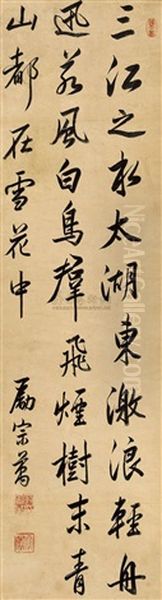 三江之水太湖東激浪輕舟
迅若風白鳥群飛煙樹末青
山都在雪花中
勵宗萬